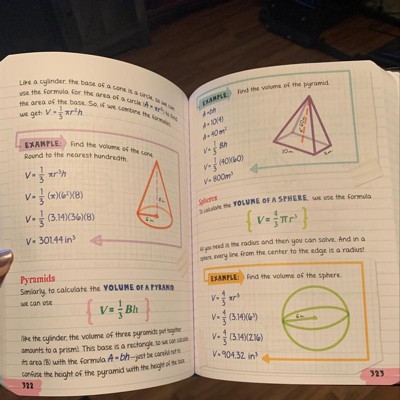 Like a cylinder, the base of a cone is a circle, so we can
use the formula for the area of a circle (A = πr²) to find
the area of the base. So, if we combine the formulas,
we get: V = 1/3 πr²h
EXAMPLE: Find the volume of the cone.
Round to the nearest hundredth.
V = 1/3 πr²h
V = 1/3 (π)(6²)(8)
V = 1/3 (3.14)(36)(8)
V = 301.44 in³
Pyramids
Similarly, to calculate the VOLUME OF A PYRAMID,
we can use
V = 1/3 Bh
(like the cylinder, the volume of three pyramids put together
amounts to a prism). This base is a rectangle, so we can calculate
its area (B) with the formula A = bh—just be careful not to
confuse the height of the pyramid with the height of the base.
322
EXAMPLE: Find the volume of the pyramid.
A = bh
A = 10(4)
A = 40 m²
V = 1/3 Bh
V = 1/3 (40)(60)
V = 800m³
10 m
Spheres
To calculate the VOLUME OF A SPHERE, we use the formula
V = 4/3 πr³
All you need is the radius and then you can solve. And in a
sphere, every line from the center to the edge is a radius!
EXAMPLE: Find the volume of the sphere.
V = 4/3 πr³
V = 4/3 (3.14)(6³)
V = 4/3 (3.14)(216)
V = 904.32 in³
6 in
323